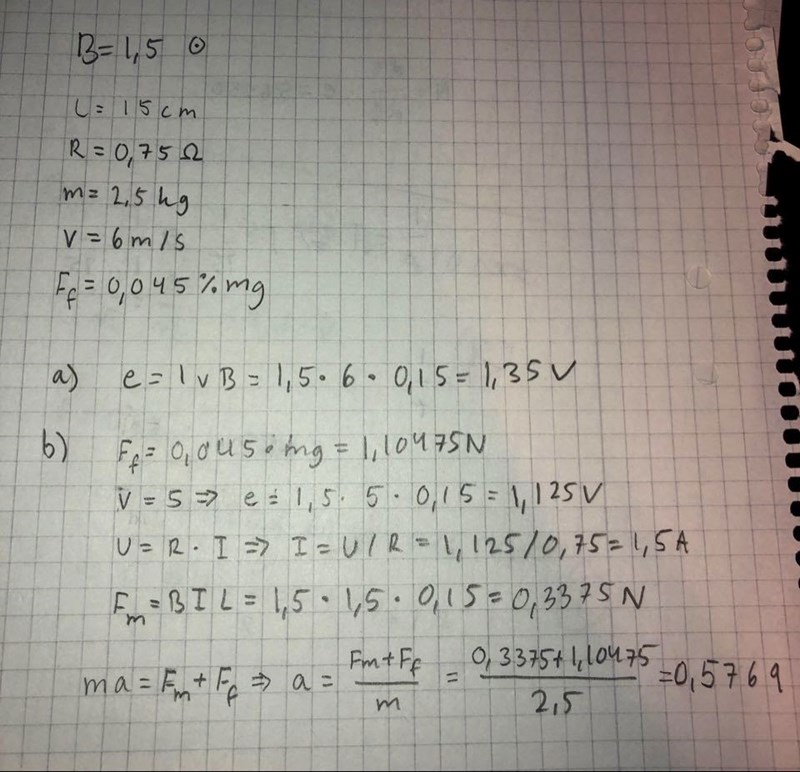 B=1,5 ⊙
L= 15cm
R=0,75Ω
m=2,5 kg
V=6m/s
Ff=0,045%mg
a) e=lvB=1,5•6•0,15=1,35V
b) Ff=0,045•mg=1,10475N
V=5⇒ e=1,5·5·0,15=1,125V
U=R·I⇒ I=U/R=1,125/0,75=1,5A
Fm=BIL=1,5•1,5·0,15=0,3375N
ma=Fm+Ff⇒ a= Fm+Ff/m = 0,3375+1,10475/2,5 =0,5769